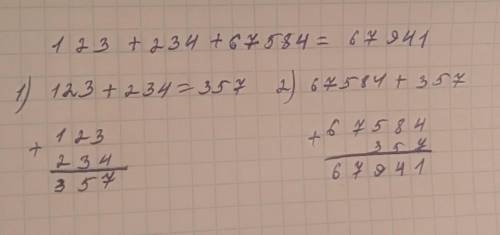 123 + 234 + 67584 = 67941
1) 123 + 234 = 357 2) 67584 + 357
+ 123
234
357
+ 67584
357
67941